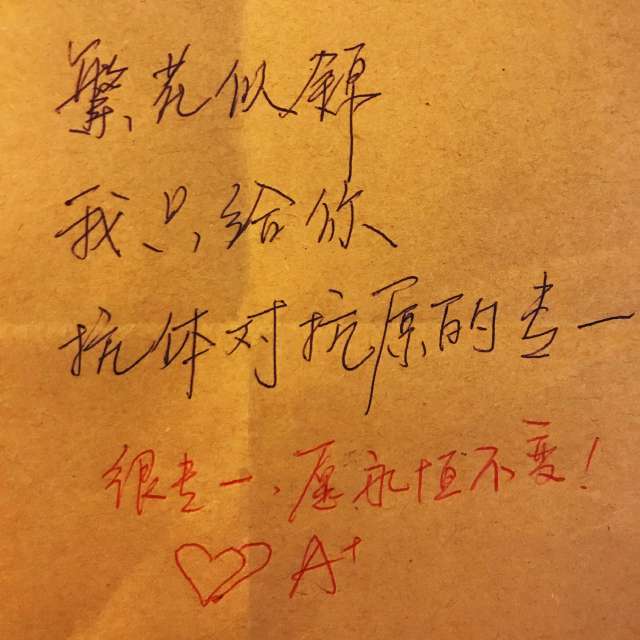 繁花似錦
我只给你
抗体对抗原的专一
很专一、愿永恒不变！
A+